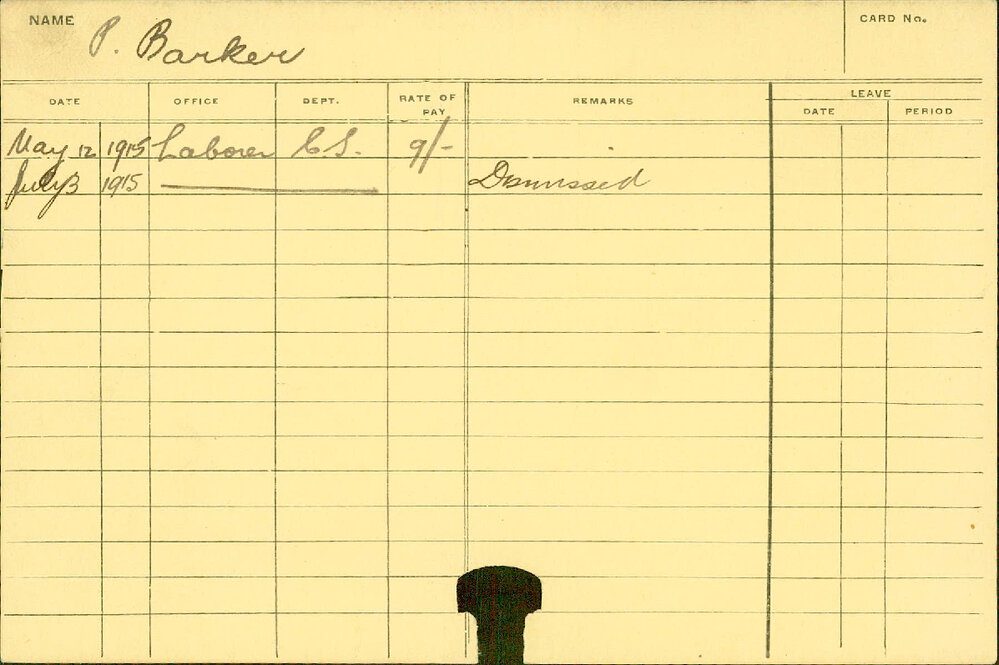 NAME P. Barker CARD No.
LEAVE
DATE OFFICE DEPT. RATE OF PAY REMARKS DATE PERIOD
May 12 1915 Laborer C.S. 9/-
July 3 1915 Dismissed